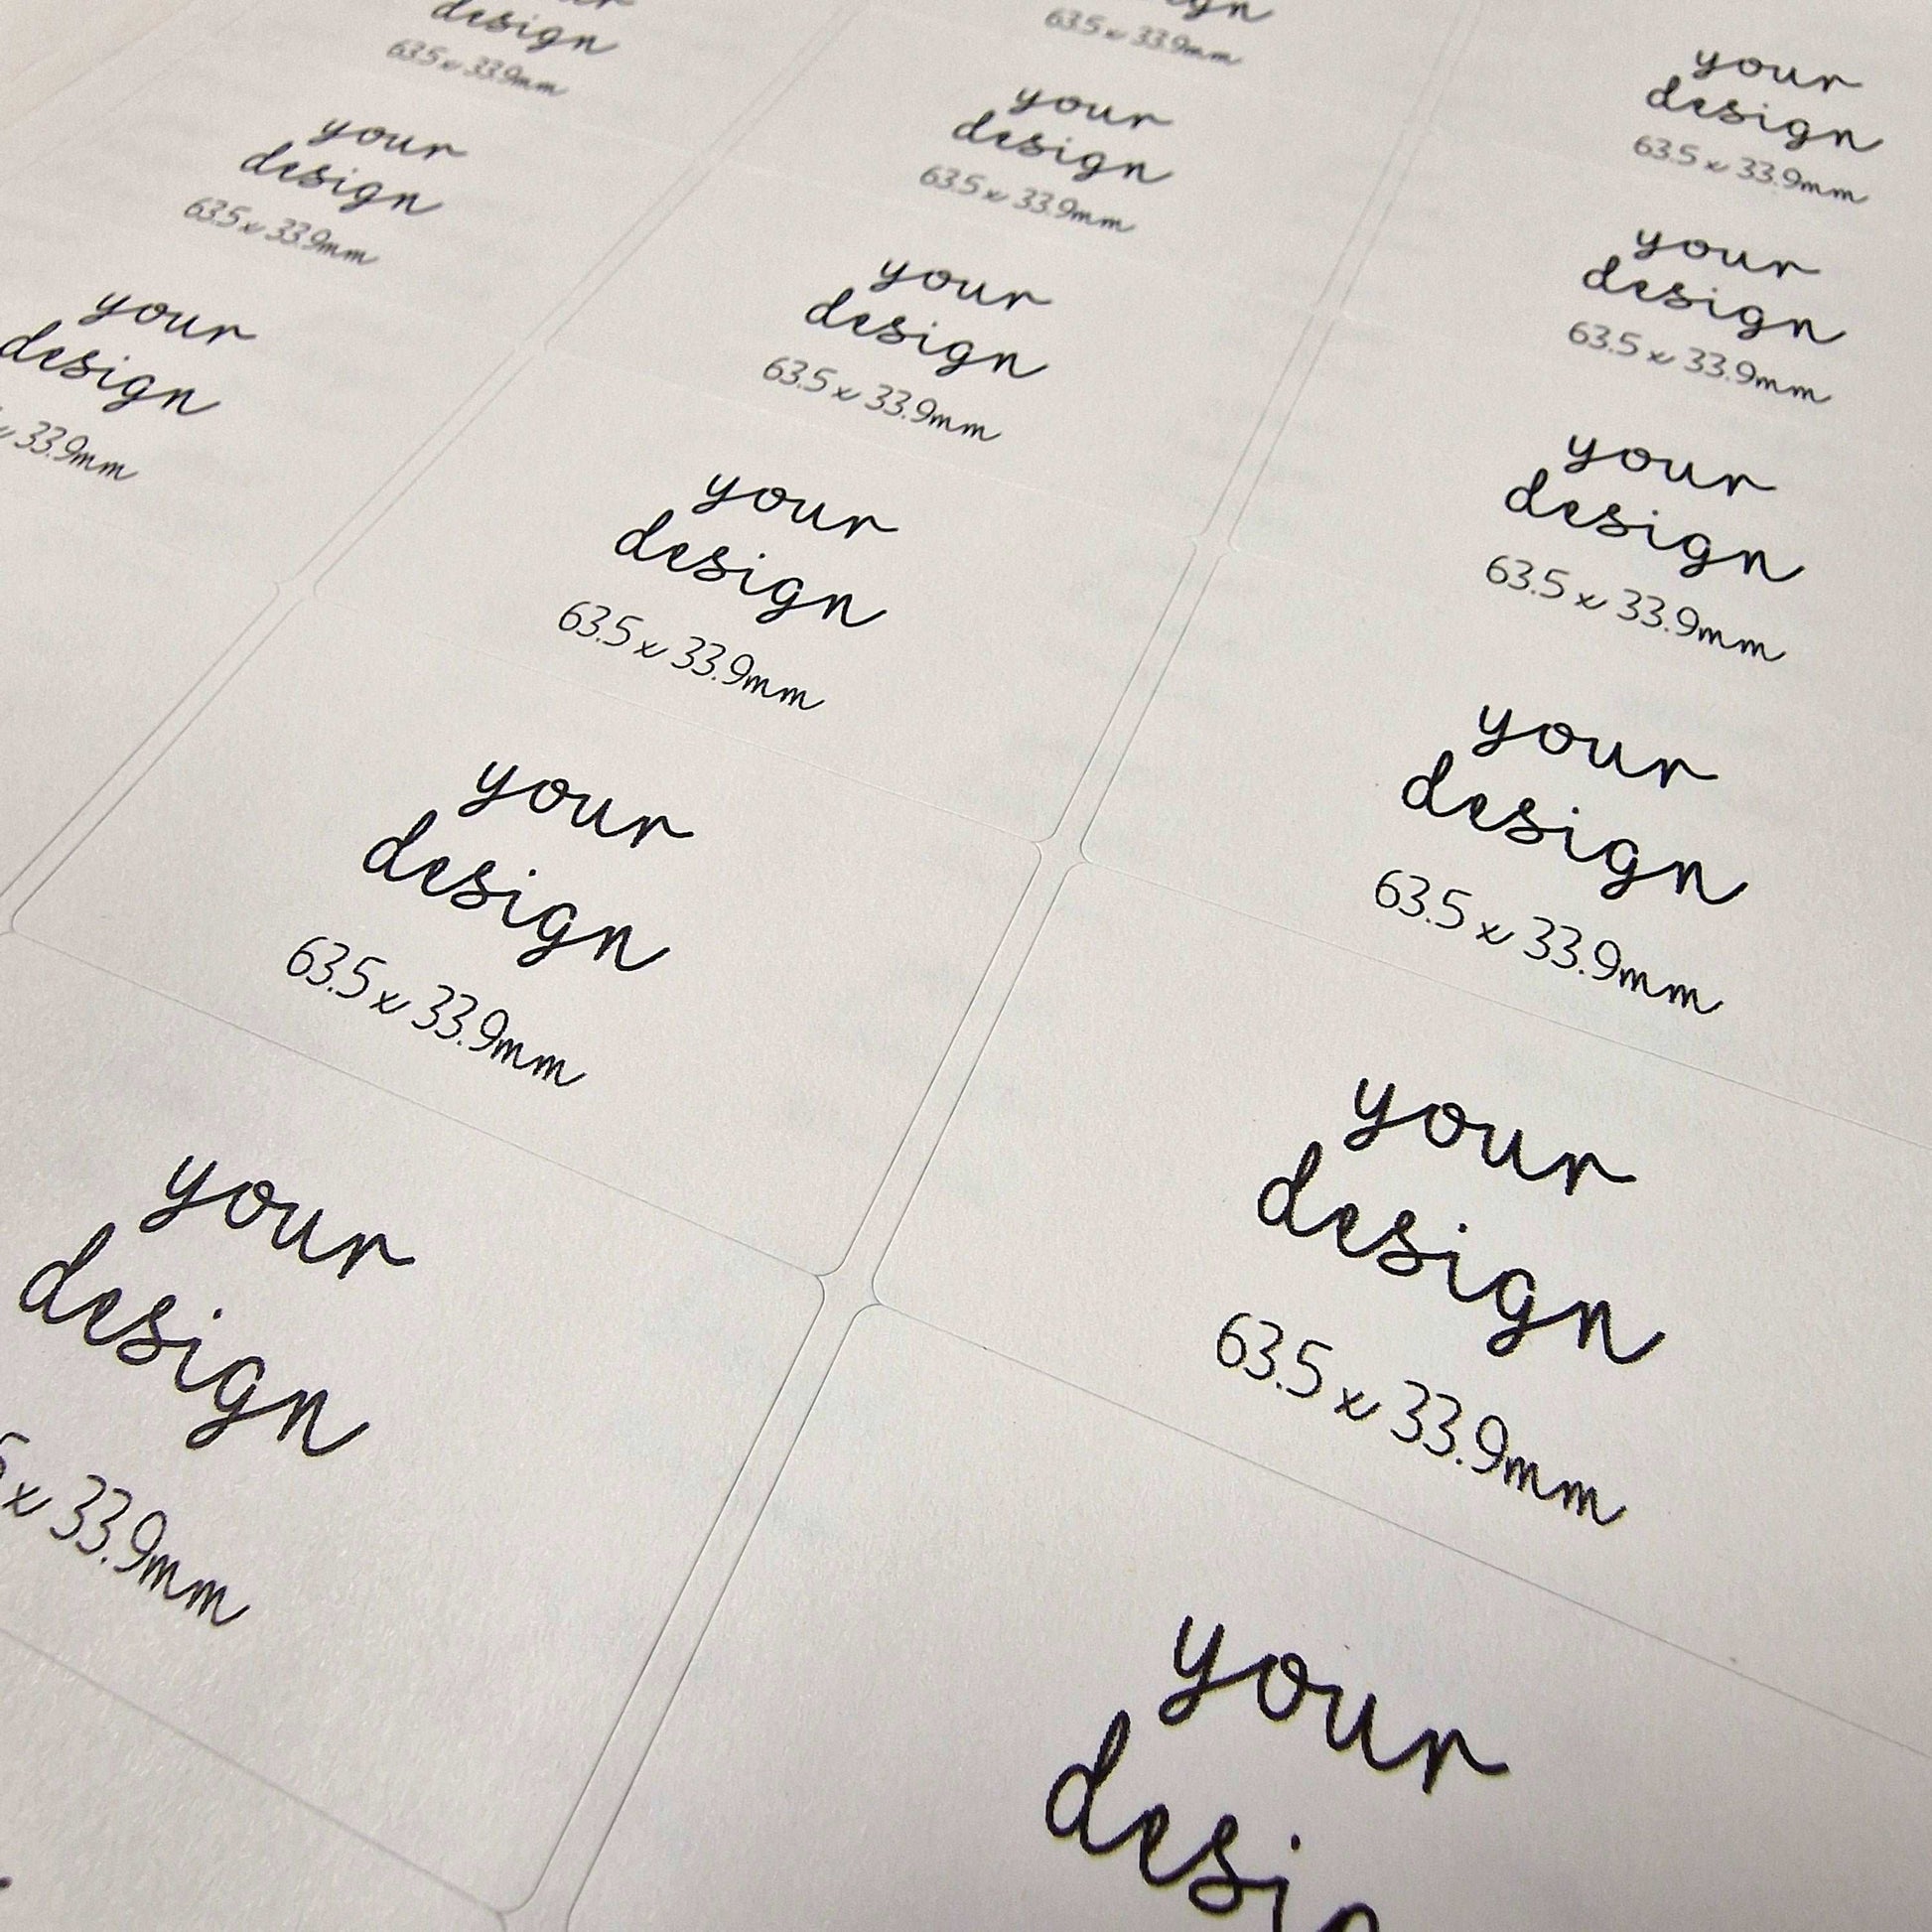 design
63.5 x 33.9mm
your
design
63.5 x 33.9mm
your
design
x 33.9mm
63.5 x 33.9mm
your
design
63.5 x 33.9mm
your
design
63.5 x 33.9mm
your
design
63.5 x 33.9mm
your
design
63.5 x 33.9mm
your
design
x 33.9mm
your
design
63.5 x 33.9mm
your
design
63.5 x 33.9mm
your
design
63.5 x 33.9mm
your
design
63.5 x 33.9mm
your
design
63.5 x 33.9mm
your